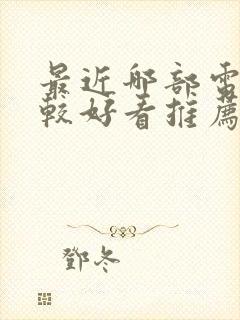 最近那部電
較好看推薦
鄧冬